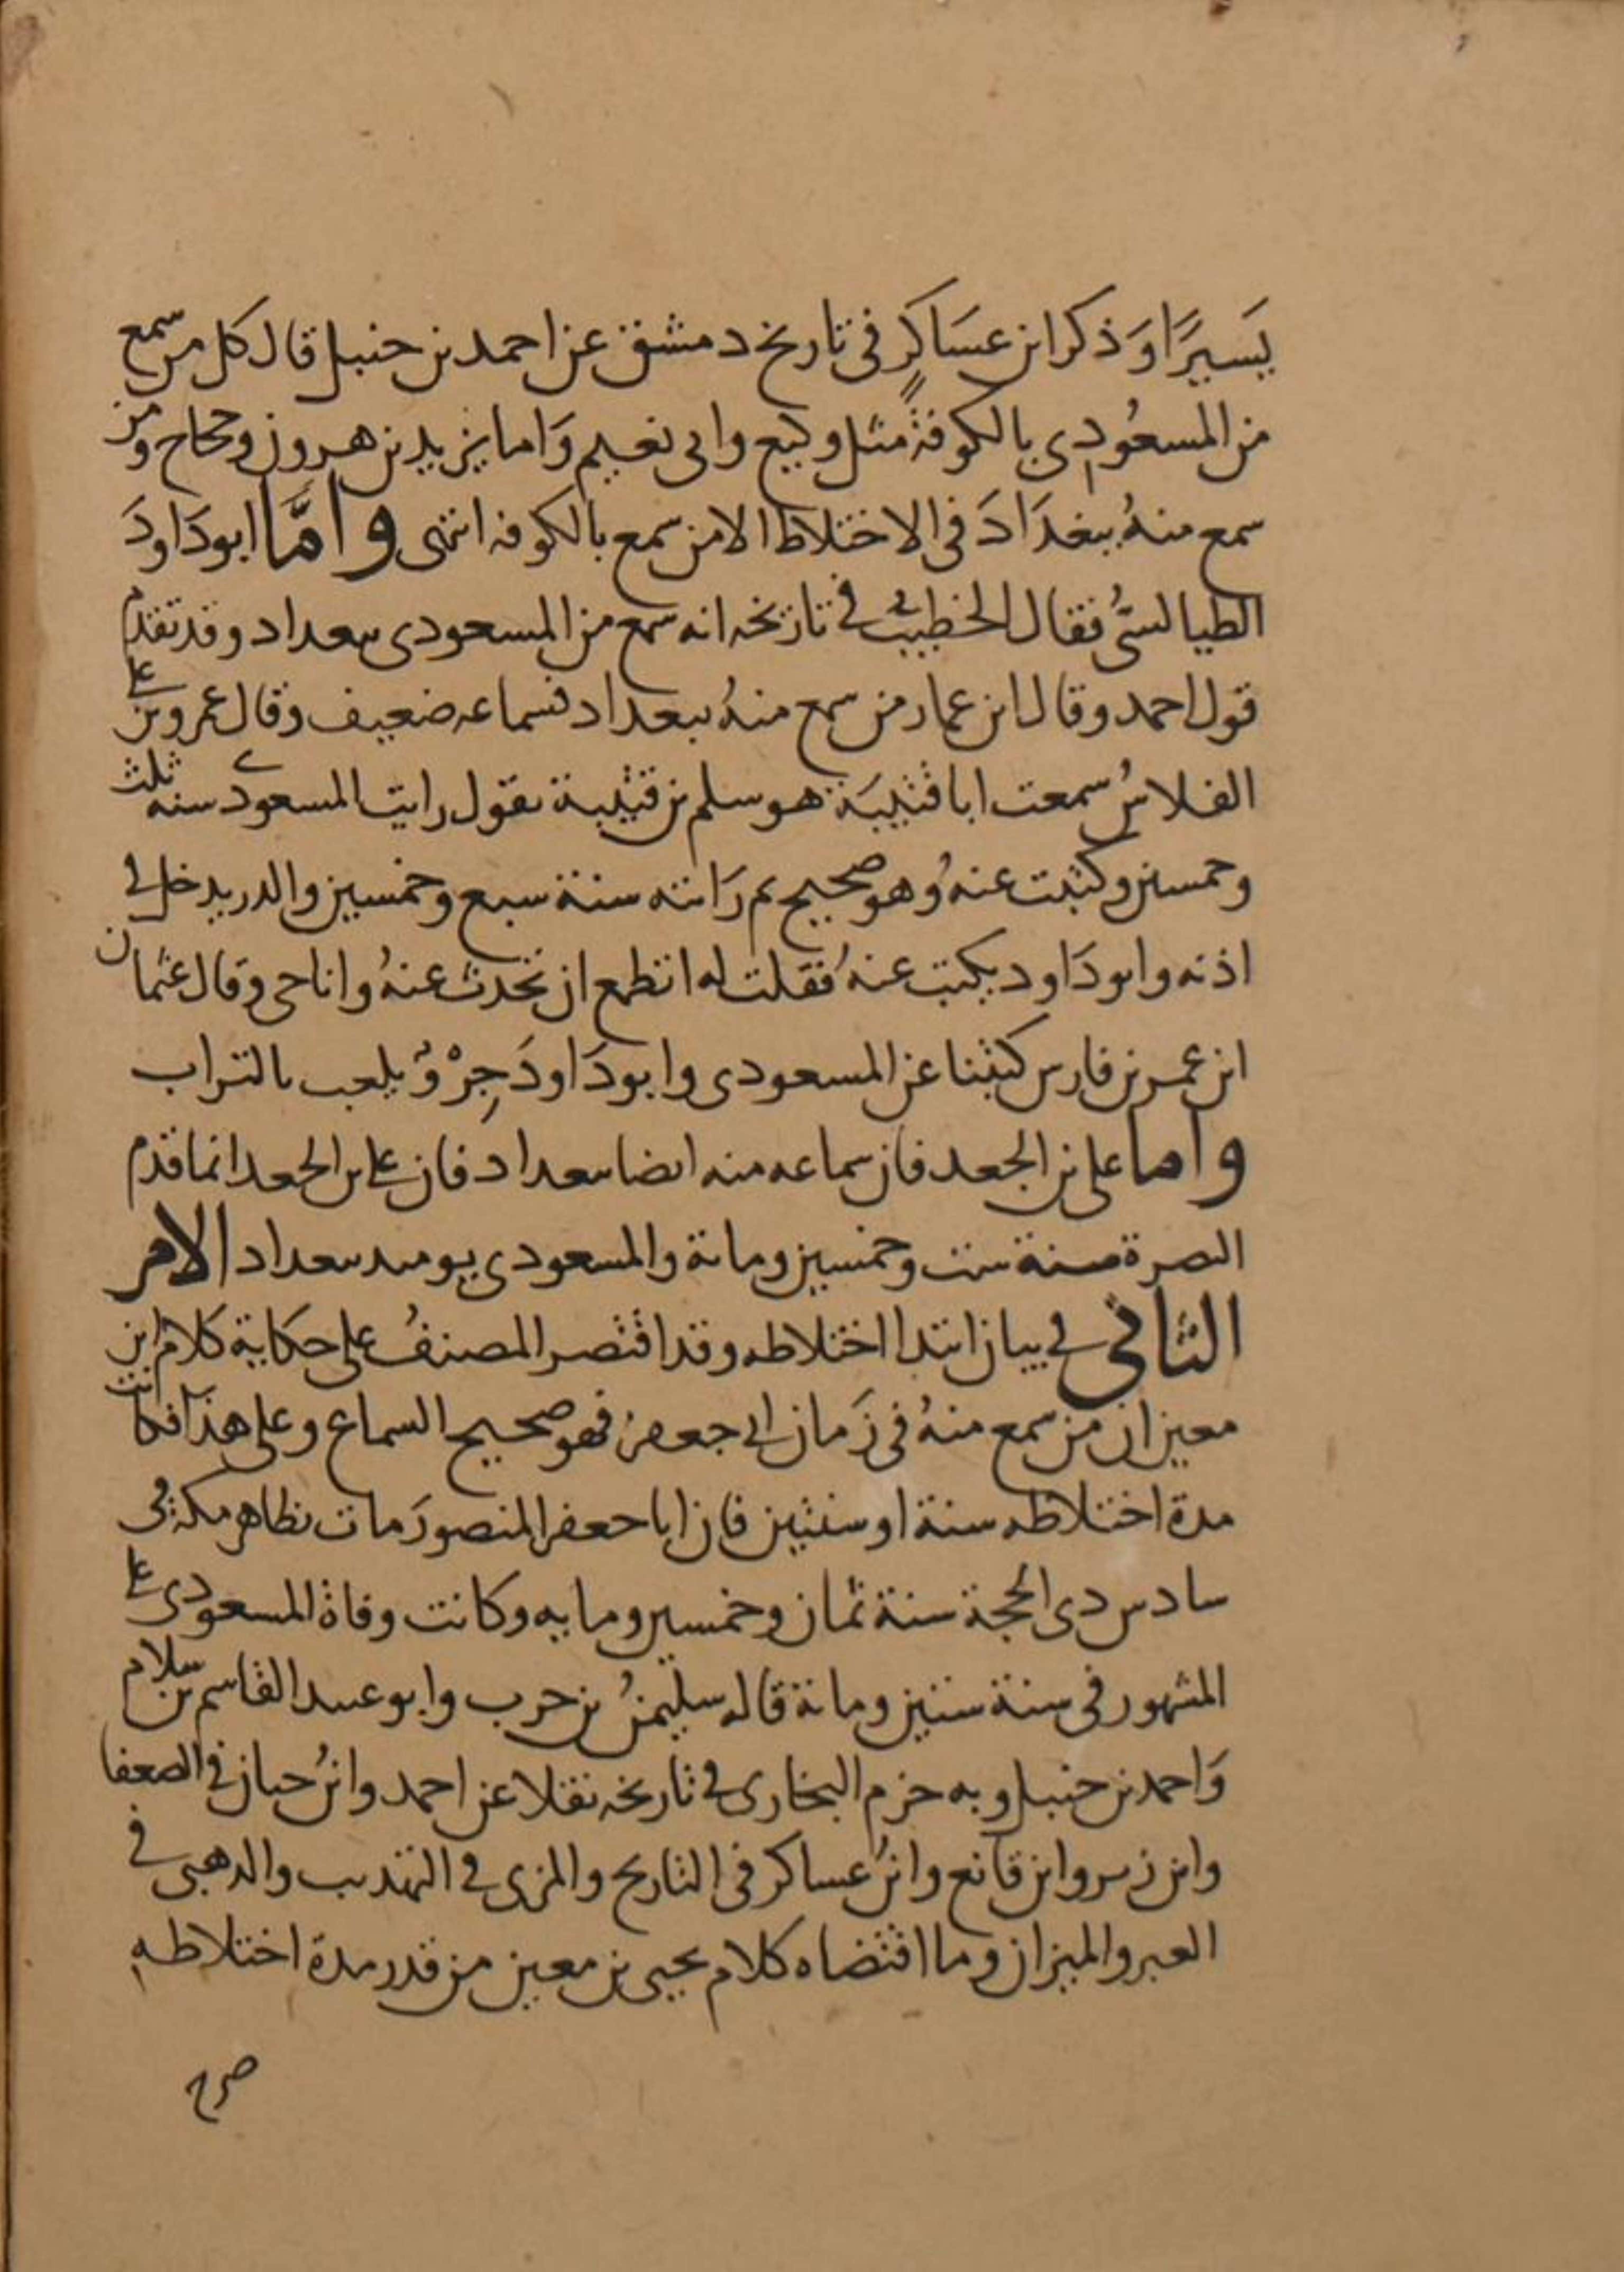 يَسيرًا وَذكر ابن عسَاكرٍ في تاريخ دمشق عن احمد بن حنبل قال كل من سمع
من المسعُودى بالكوفة مثل وكيع وابى نعيم وَاما يزيد بن هرون وحجاج ومن
سمع منهُ ببغدَادَ فى الاختلاط الا من سمع بالكوفه انتهى وامَّا ابو دَاودَ
الطيالسىُّ فقال الخطيب فى تاريخه انه سمع من المسعودى ببغداد وقد تقدم
قول احمد وقال ابن عمار من سمع منهُ ببغداد فسماعه ضعيف وقال عمرو بن على
الفلاسُ سمعت ابا قتيبَة هو سلم بن قتيبة يقول رايت المسعودى سنه ثلث
وخمسين وكتبت عنهُ وهو صحيح ثم رَايته سنة سبع وخمسين والذر يدخل فى
اذنه وابو دَاود يكتب عنهُ فقلت له اتطمع ان تحدث عنهُ وانا حى وقال عثمان
ابن عمر بن فارس كتبنا عن المسعودى وابو دَاودَ جِرْوٌ يلعب بالتراب
واما على بن الجعد فان سماعه منه ايضا ببغداد فان على بن الجعد انما قدم
البصرة سنة ست وخمسين ومائة والمسعودى يومئذ ببغداد الامر
الثانى فى بيان ابتدا اختلاطه وقد اقتصر المصنفُ على حكاية كلام ابن
معين ان من سمع منهُ فى زَمان ابى جعفر فهو صحيح السماع وعلى هذا فكانت
مدة اختلاطه سنة او سنتين فان ابا جعفر المنصورَ مات بظاهر مكة فى
سادس ذى الحجة سنة ثمان وخمسين ومايه وكانت وفاة المسعودى على
المشهور فى سنة ستين ومائة قاله سليمنُ بن حرب وابو عبيد القاسم بن سلام
وَاحمد بن حنبل وبه جزم البخارى فى تاريخه نقلا عن احمد وابنُ حبان فى الضعفا
وابن زبر وابن قانع وابنُ عساكر فى التاريخ والمزى فى التهذيب والذهبى فى
العبر والميزان وما اقتضاه كلام يحيى بن معين من قدر مدة اختلاطهِ
صرح